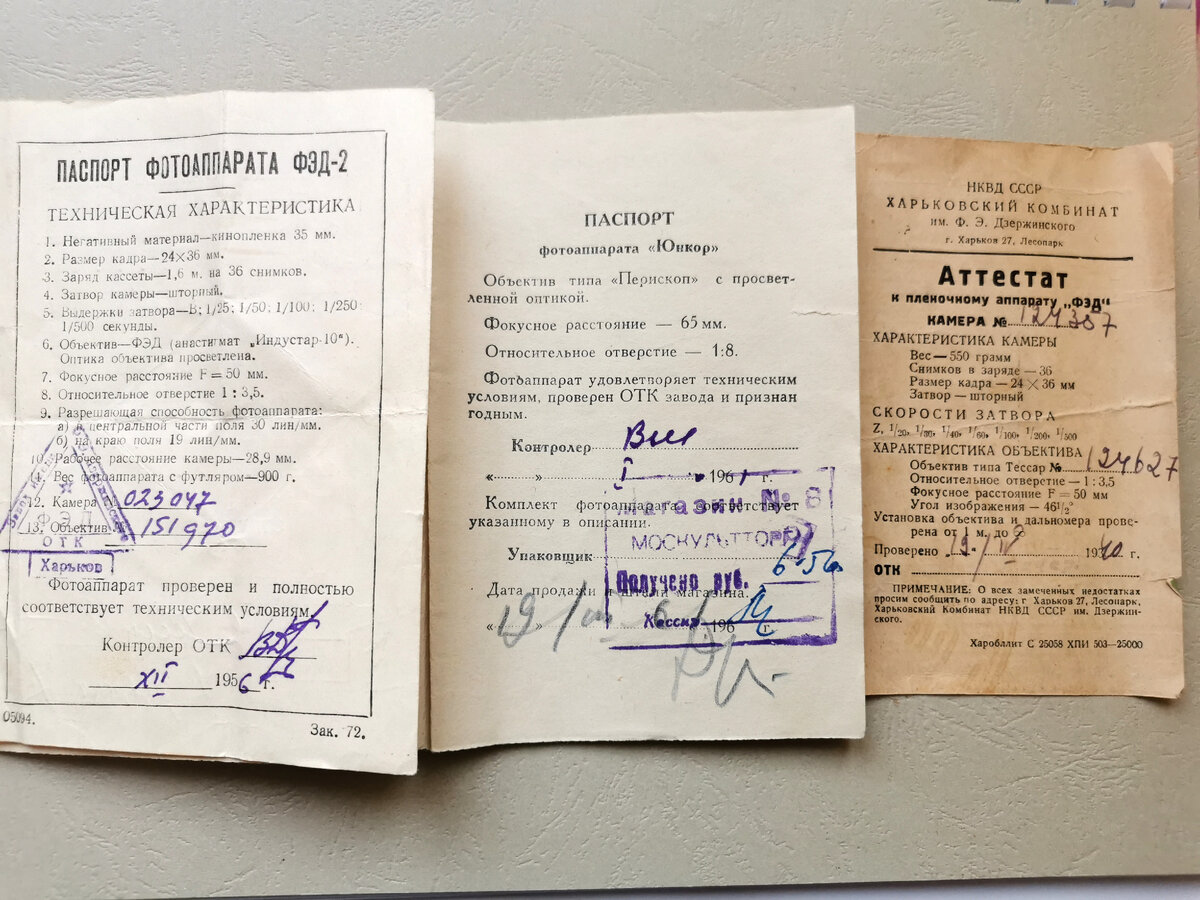 ПАСПОРТ ФОТОАППАРАТА ФЭД-2
ТЕХНИЧЕСКАЯ ХАРАКТЕРИСТИКА
1. Негативный материал—кинопленка 35 мм.
2. Размер кадра—24×36 мм.
3. Заряд кассеты—1,6 м. на 36 снимков.
4. Затвор камеры—шторный.
5. Выдержки затвора—В; 1/25; 1/50; 1/100; 1/250
1/500 секунды.
6. Объектив—ФЭД (анастигмат „Индустар-10").
Оптика объектива просветлена.
7. Фокусное расстояние F = 50 мм.
8. Относительное отверстие 1 : 3,5.
9. Разрешающая способность фотоаппарата:
а) в центральной части поля 30 лин/мм.
б) на краю поля 19 лин/мм.
10. Рабочее расстояние камеры—28,9 мм.
11. Вес фотоаппарата с футляром—900 г.
12. Камера № 023047
13. Объектив № 151970
ФЭД
ОТК
Харьков
Фотоаппарат проверен и полностью
соответствует техническим условиям.
Контролер ОТК
XII 1956 г.
05094.
Зак. 72.
ПАСПОРТ
фотоаппарата «Юнкор»
Объектив типа «Перископ» с просвет-
ленной оптикой.
Фокусное расстояние — 65 мм.
Относительное отверстие — 1:8.
Фотоаппарат удовлетворяет техническим
условиям, проверен ОТК завода и признан
годным.
Контролер
« » I 1961 г.
Комплект фотоаппарата соответствует
указанному в описании.
Упаковщик
Дата продажи и штамп магазина.
« 19 » 196 г.
Магазин № 8
МОСКУЛЬТТОРГ
Получено руб.
Кассир
НКВД СССР
ХАРЬКОВСКИЙ КОМБИНАТ
им. Ф. Э. Дзержинского
г. Харьков 27, Лесопарк
Аттестат
к пленочному аппарату „ФЭД"
КАМЕРА № 124307
ХАРАКТЕРИСТИКА КАМЕРЫ
Вес — 550 грамм
Снимков в заряде — 36
Размер кадра — 24 × 36 мм
Затвор — шторный
СКОРОСТИ ЗАТВОРА
Z, 1/20, 1/30, 1/40, 1/60, 1/100, 1/200, 1/500
ХАРАКТЕРИСТИКА ОБЪЕКТИВА
Объектив типа Тессар № 124627
Относительное отверстие — 1 : 3,5
Фокусное расстояние F = 50 мм
Угол изображения — 46½°
Установка объектива и дальномера прове-
рена от 1 м. до ∞
Проверено 19/IV 1940 г.
ОТК
ПРИМЕЧАНИЕ: О всех замеченных недостатках
просим сообщить по адресу: г Харьков 27, Лесопарк,
Харьковский Комбинат НКВД СССР им. Дзержин-
ского.
Харобллит С 25058 ХПИ 503—25000